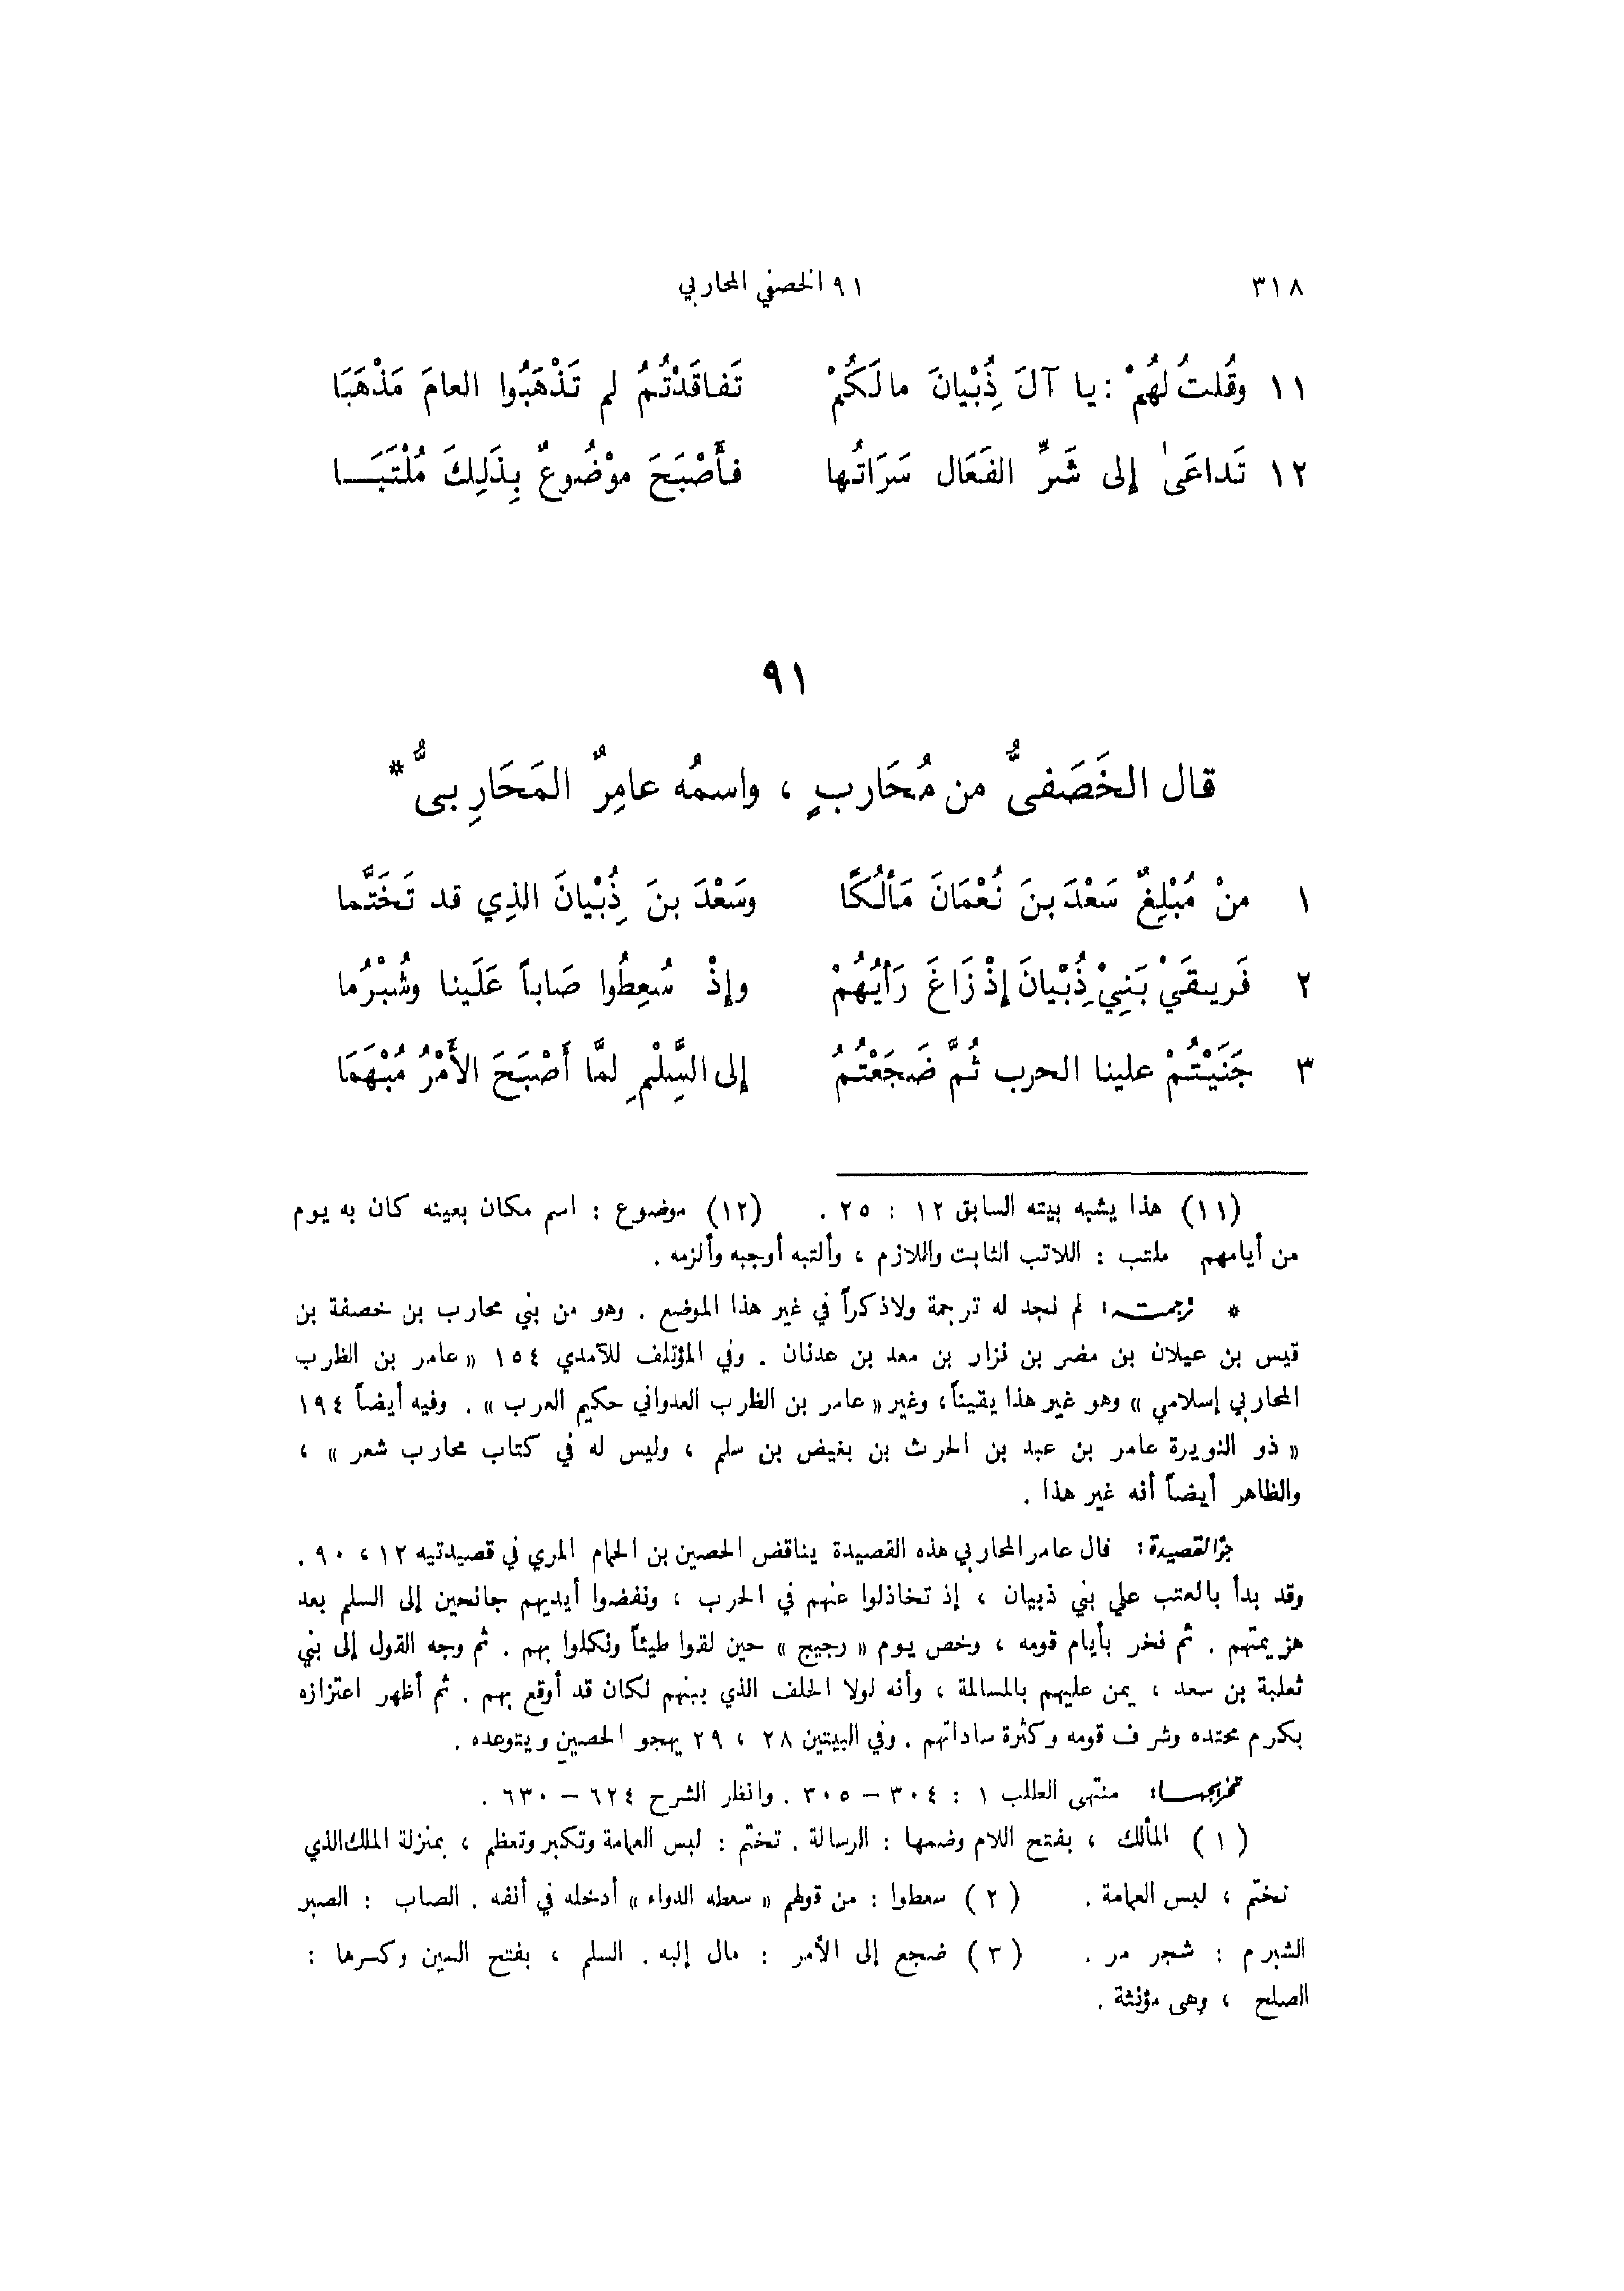 ٣١٨ ٩١ الخصفي المحاربي
١١ وقُلتُ لهُمْ : يا آلَ ذُبْيانَ مالَكُمْ تَفاقَدْتُمُ لم تَذْهَبُوا العامَ مَذْهَبَا
١٢ تَداعَىٰ إلى شَرِّ الفَعَال سَرَاتُها فأَصْبَحَ موْضُوعٌ بِذَلِكَ مُلْتَبَا
٩١
قال الخَصَفىُّ من مُحَاربٍ ، واسمُه عامِرٌ المَحَارِبىُّ *
١ منْ مُبْلِغٌ سَعْدَ بنَ نُعْمَانَ مَألُكًا وسَعْدَ بنَ ذُبْيانَ الذِي قد تَخَتَّما
٢ فَريقَيْ بَنِيْ ذُبْيانَ إذْ زَاغَ رَأيُهُمْ وإذْ سُعِطُوا صَاباً عَلَينا وشُبْرُما
٣ جَنَيْتُمْ علينا الحرب ثُمَّ ضَجَعْتُمُ إلى السَِّلْمِ لمَّا أَصْبَحَ الأَمْرُ مُبْهَمَا
(١١) هذا يشبه بيته السابق ١٢ : ٢٥ . (١٢) موضوع : اسم مكان بعينه كان به يوم
من أيامهم ملتب : اللاتب الثابت واللازم ، وألتبه أوجبه وألزمه .
* ترجمته: لم نجد له ترجمة ولاذكراً في غير هذا الموضع . وهو من بني محارب بن خصفة بن
قيس بن عيلان بن مضر بن نزار بن معد بن عدنان . وفي المؤتلف للآمدي ١٥٤ « عامر بن الظرب
المحاربي إسلامي » وهو غير هذا يقيناً ، وغير « عامر بن الظرب العدواني حكيم العرب » . وفيه أيضاً ١٩٤
« ذو النويرة عامر بن عبد بن الحرث بن بغيض بن سلم ، وليس له في كتاب محارب شعر » ،
والظاهر أيضاً أنه غير هذا .
جو القصيدة: قال عامر المحاربي هذه القصيدة يناقض الحصين بن الحمام المري في قصيدتيه ١٢ ، ٩٠ .
وقد بدأ بالعتب على بني ذبيان ، إذ تخاذلوا عنهم في الحرب ، ونفضوا أيديهم جانحين إلى السلم بعد
هزيمتهم . ثم فخر بأيام قومه ، وخص يوم « رجيج » حين لقوا طيئاً ونكلوا بهم . ثم وجه القول إلى بني
ثعلبة بن سعد ، يمن عليهم بالمسالمة ، وأنه لولا الحلف الذي بينهم لكان قد أوقع بهم . ثم أظهر اعتزازه
بكرم محتده وشرف قومه وكثرة ساداتهم . وفي البيتين ٢٨ ، ٢٩ يهجو الحصين ويتوعده .
تخريجها: منتهى الطلب ١ : ٣٠٤ – ٣٠٥ . وانظر الشرح ٦٢٤ – ٦٣٠ .
( ١ ) المألك ، بفتح اللام وضمها : الرسالة . تختم : لبس العمامة وتكبر وتعظم ، بمنزلة الملك الذي
تختم ، لبس العمامة . ( ٢ ) سعطوا : من قولهم « سعطه الدواء » أدخله في أنفه . الصاب : الصبر
الشبرم : شجر مر . ( ٣ ) ضجع إلى الأمر : مال إليه . السلم ، بفتح السين وكسرها :
الصلح ، وهى مؤنثة .